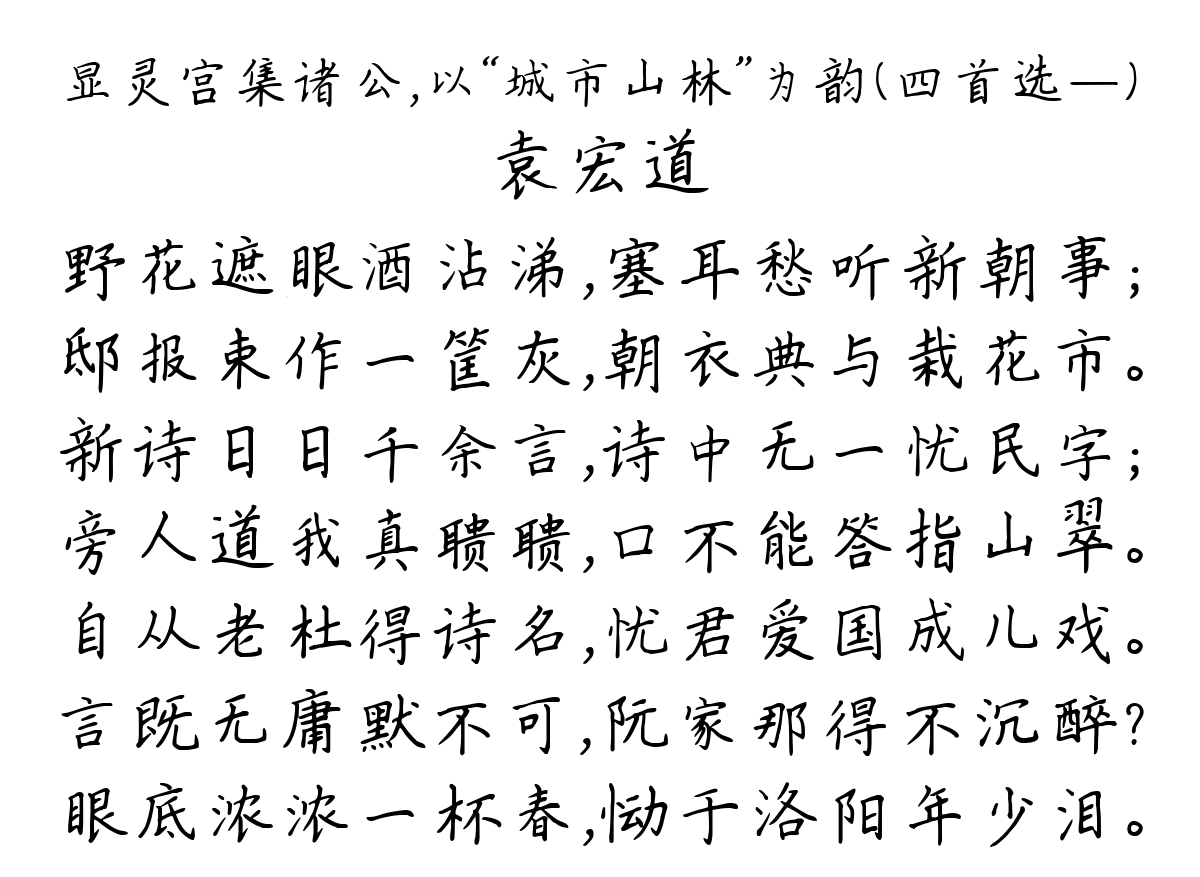 显灵宫集诸公,以“城市山林”为韵(四首选一)
袁宏道
野花遮眼酒沾涕,塞耳愁听新朝事;
邸报束作一筐灰,朝衣典与栽花市。
新诗日日千余言,诗中无一忧民字;
旁人道我真聩聩,口不能答指山翠。
自从老杜得诗名,忧君爱国成儿戏。
言既无庸默不可,阮家那得不沉醉?
眼底浓浓一杯春,恸于洛阳年少泪。